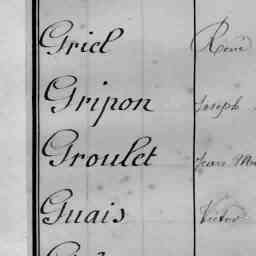 Griel René
Gripon Joseph
Groulet Jean
Guais Victor